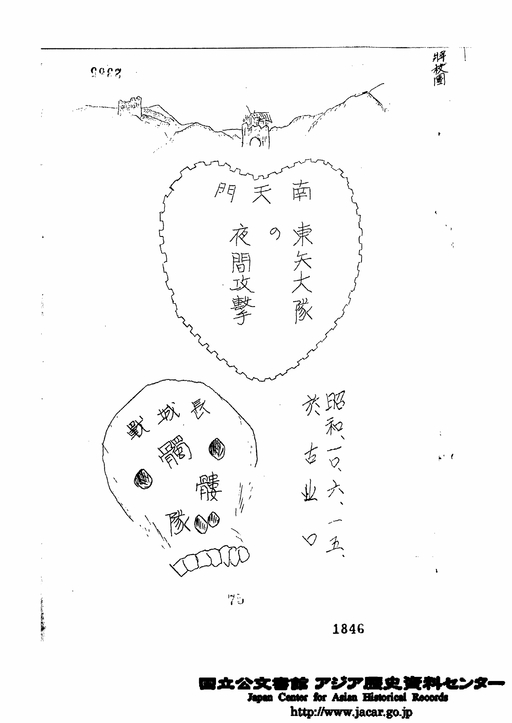 将校團
2365
南天門
東矢大隊
の
夜間攻撃
長城戰
髑
髏
隊
昭和、一〇、六、一五、
於古北口
75
1846
国立公文書館 アジア歴史資料センター
Japan Center for Asian Historical Records
http://www.jacar.go.jp